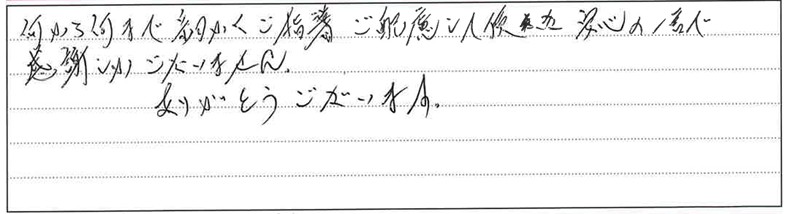 何から何まで細かくご指導ご配慮いただ 安心の一言で
感謝しかございません。
ありがとうございます。